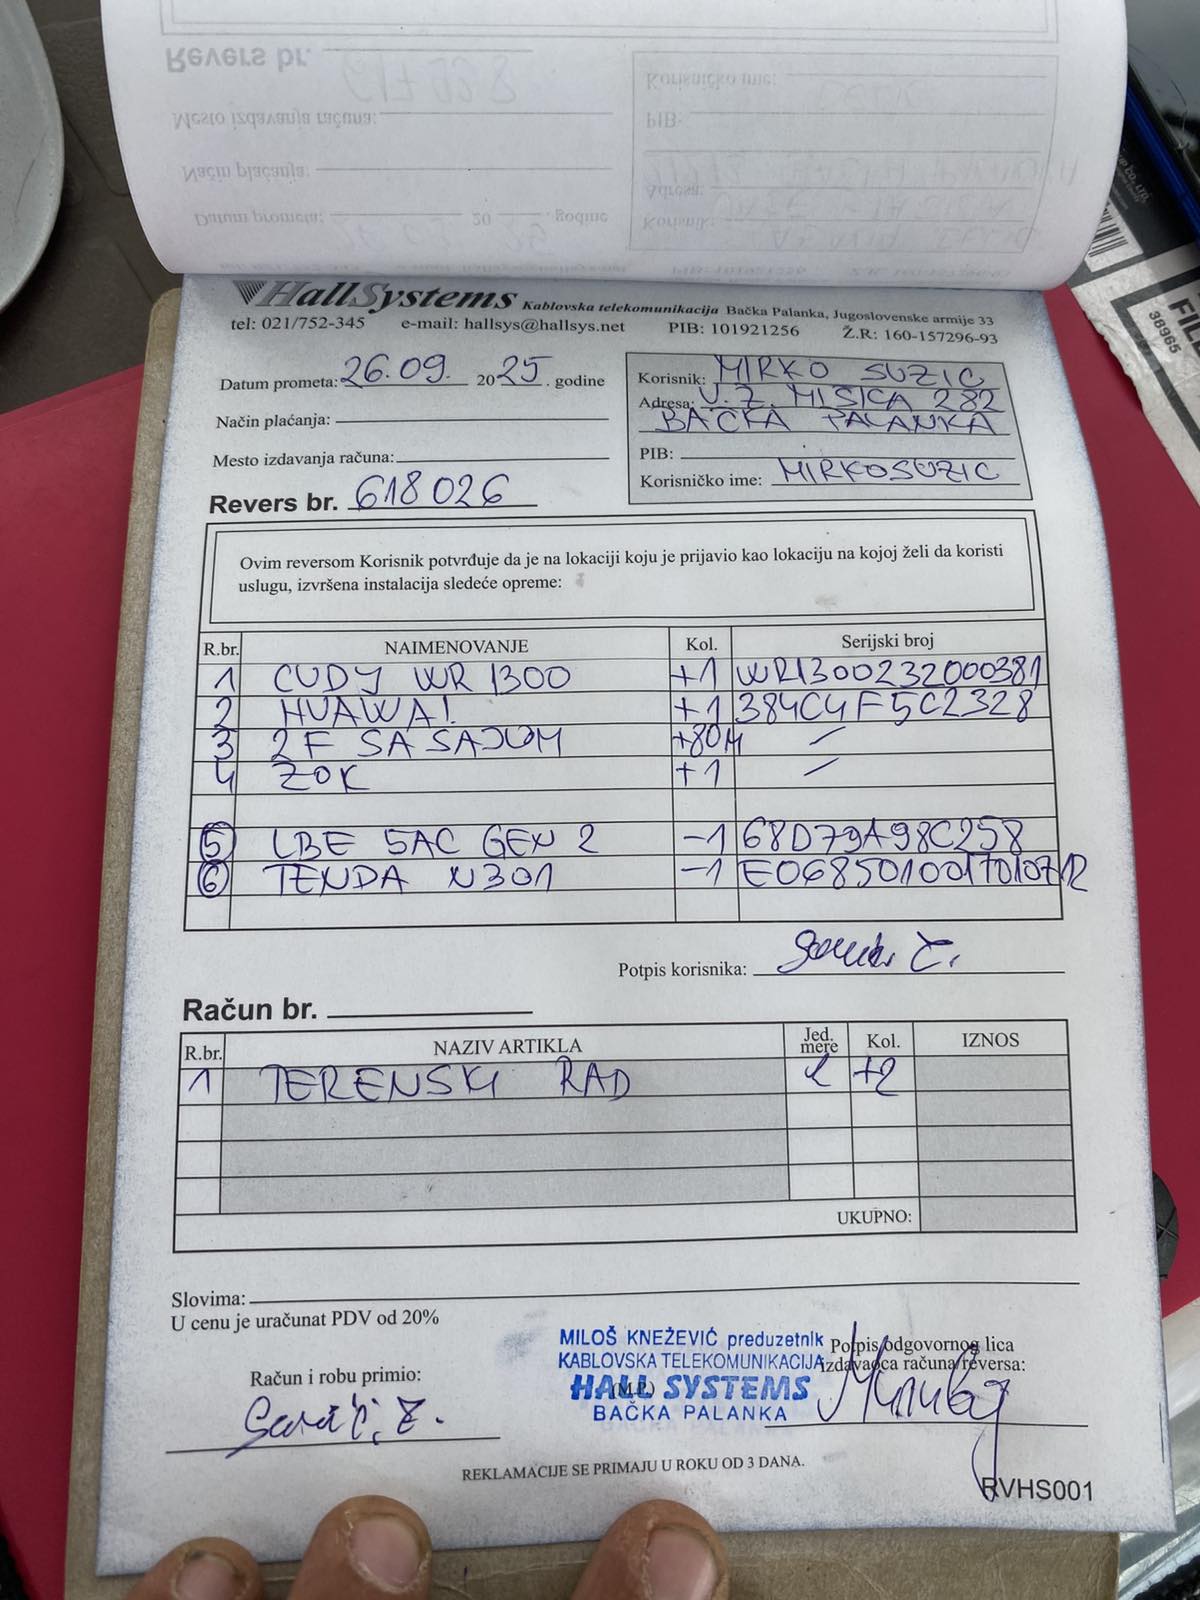 Revers br. 617998
Mesto izdavanja računa:
Način plaćanja:
Datum prometa: 20 godine
Korisničko ime:
PIB:
Adresa:
Korisnik:
HallSystems Kablovska telekomunikacija Bačka Palanka, Jugoslovenske armije 33
tel: 021/752-345 e-mail: hallsys@hallsys.net PIB: 101921256 Ž.R: 160-157296-93
Datum prometa: 26.09. 2025. godine
Način plaćanja:
Mesto izdavanja računa:
Revers br. 618026
Korisnik: MIRKO SUZIC
Adresa: V. Z. MISICA 282
BAČKA PALANKA
PIB:
Korisničko ime: MIRKOSUZIC
Ovim reversom Korisnik potvrđuje da je na lokaciji koju je prijavio kao lokaciju na kojoj želi da koristi
uslugu, izvršena instalacija sledeće opreme:
R.br. NAIMENOVANJE Kol. Serijski broj
1 CUDY WR 1300 +1 WR1300232000381
2 HUAWAI +1 384C4F5C2328
3 2F SA SAJLOM +80M /
4 ZOK +1 /
5 LBE 5AC GEN 2 -1 68D79A98C258
6 TENDA N301 -1 E0685010017010712
Potpis korisnika:
Račun br.
R.br. NAZIV ARTIKLA Jed. mere Kol. IZNOS
1 TERENSKI RAD +2
UKUPNO:
Slovima:
U cenu je uračunat PDV od 20%
Račun i robu primio:
MILOŠ KNEŽEVIĆ preduzetnik
KABLOVSKA TELEKOMUNIKACIJA
(M.P.)
HALL SYSTEMS
BAČKA PALANKA
Potpis odgovornog lica
izdavaoca računa/reversa:
REKLAMACIJE SE PRIMAJU U ROKU OD 3 DANA.
RVHS001
38965